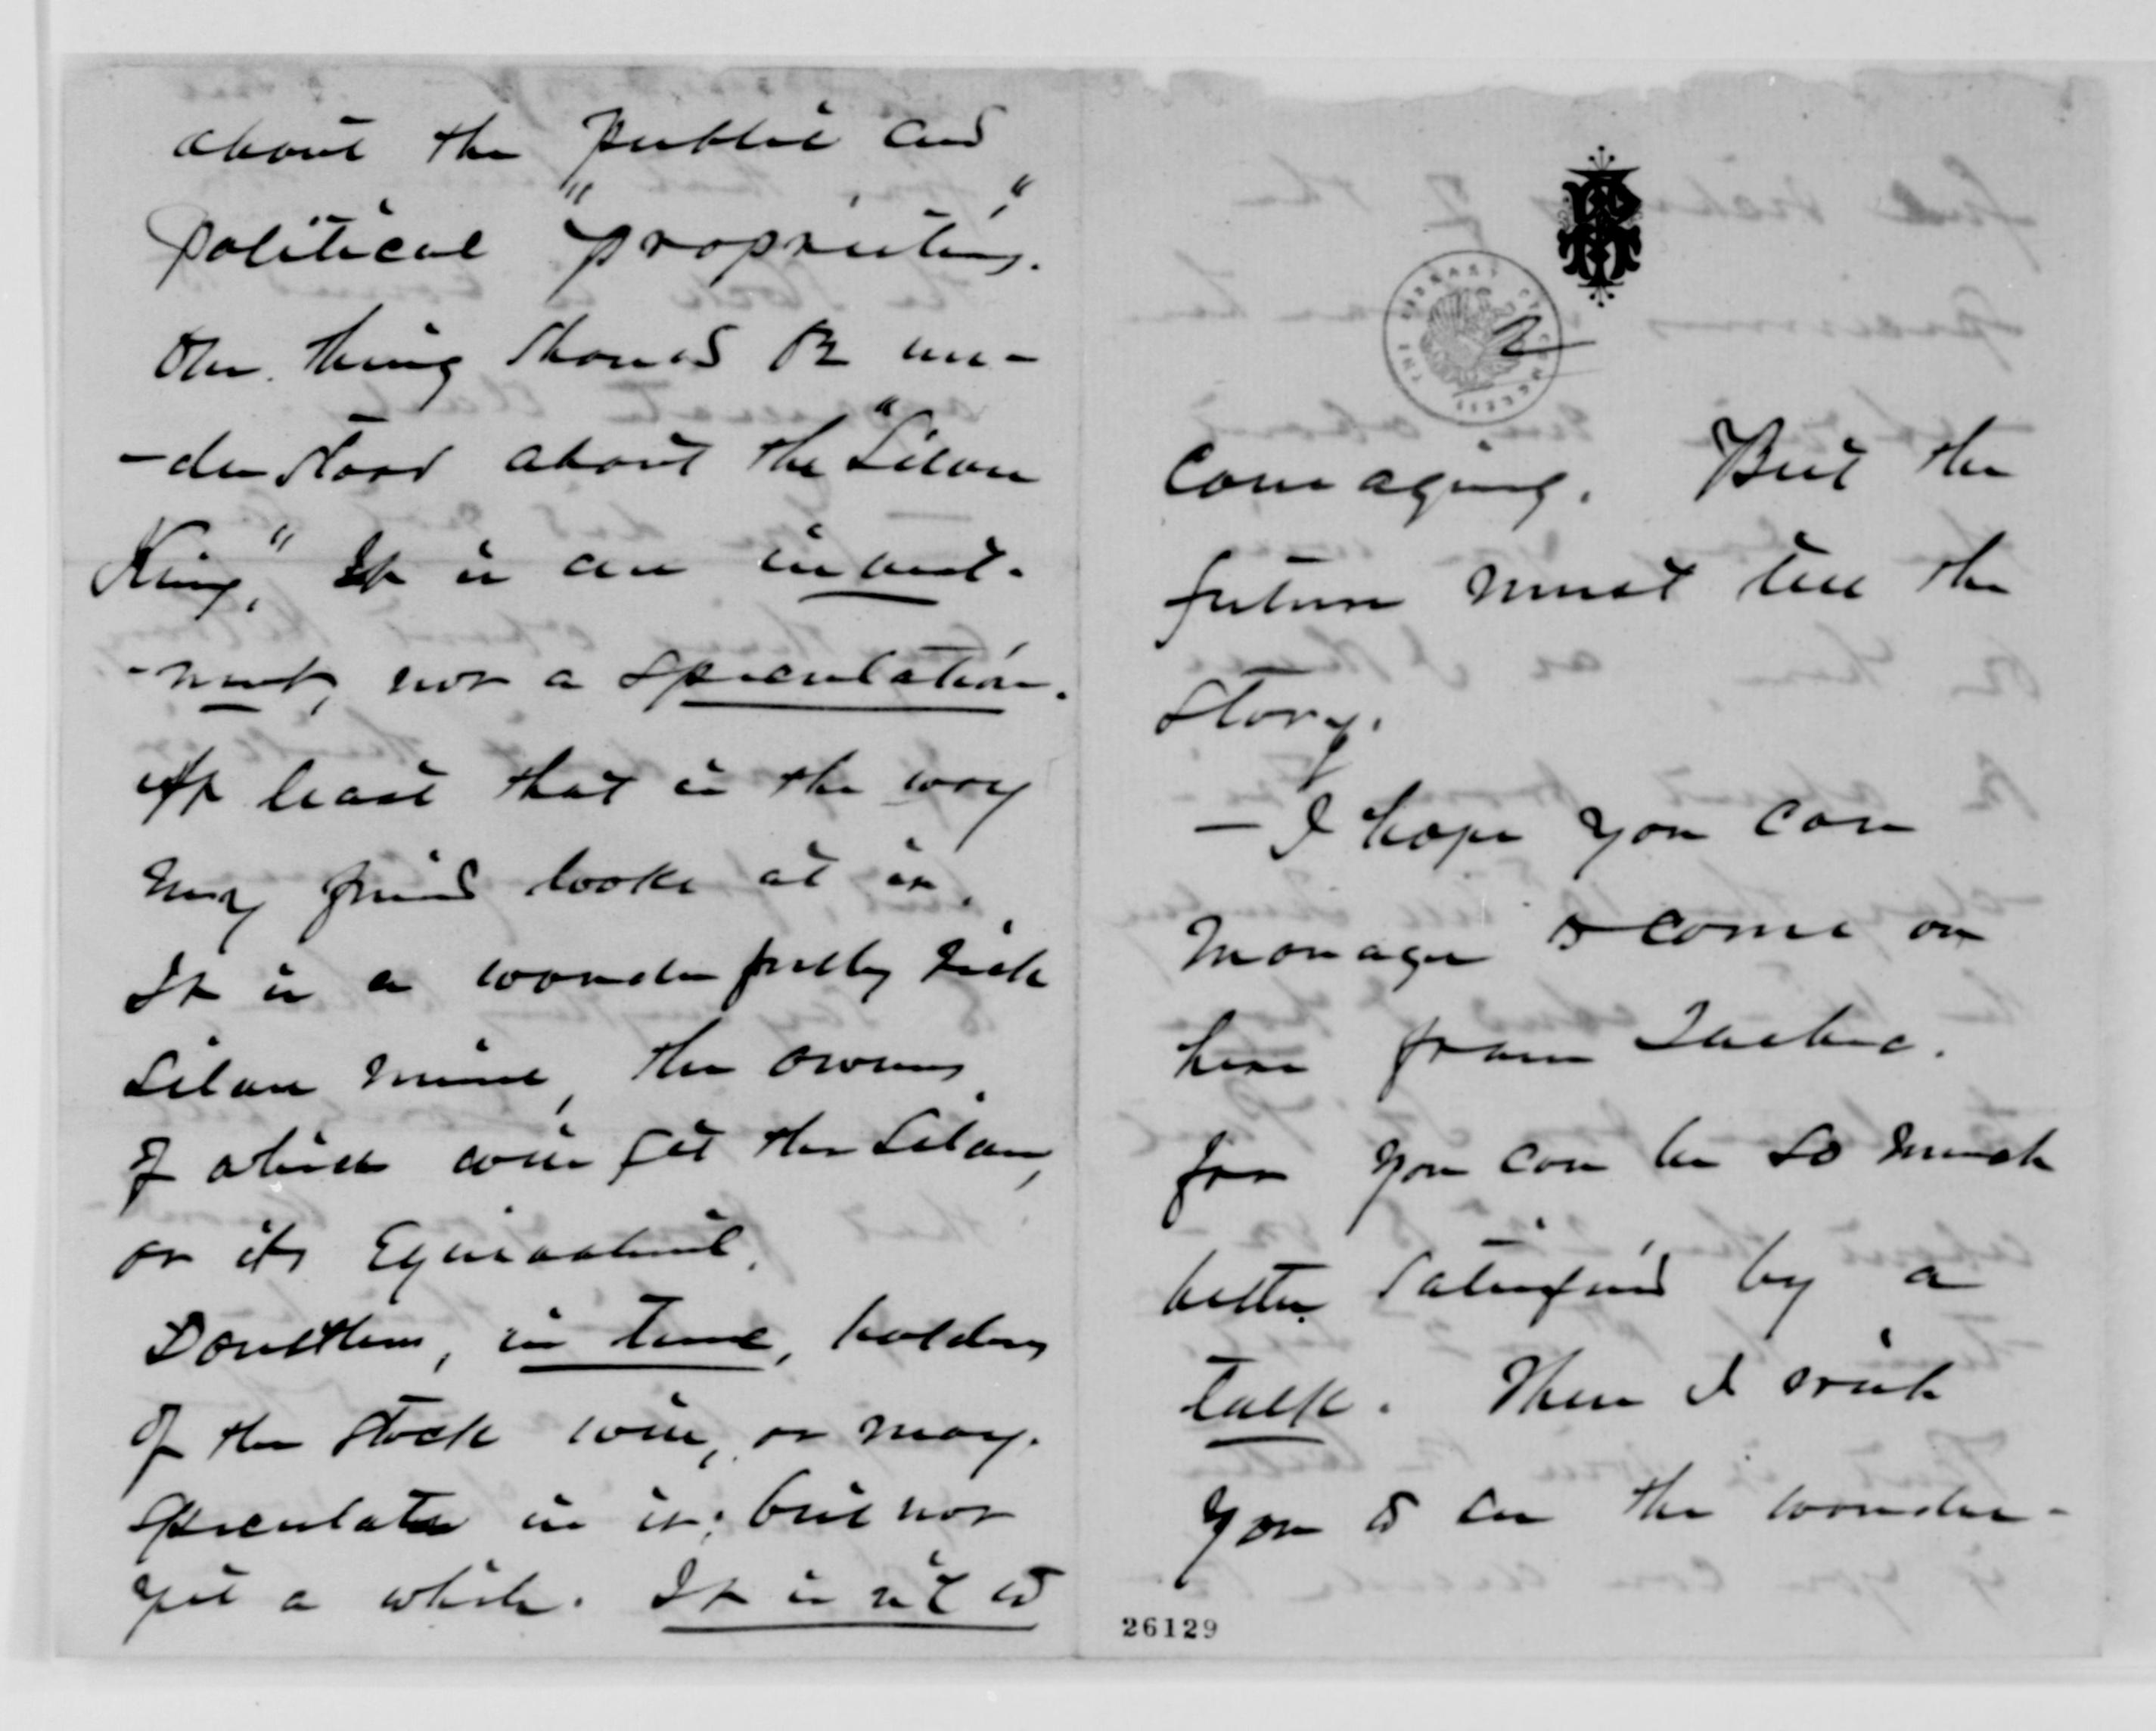 about the public and
political "proprieties."
One thing should be un-
-derstood about the "Silver
King," It is an invest-
-ment, not a speculation.
At least that is the way
my friend looks at it.
It is a wonderfully rich
silver mine, the owners
of which will get the silver,
or its equivalent.
Doubtless, in time, holders
of the stock will, or may
speculate in it; but not
yet a while. It is not to
2
couraging. But the
future must tell the
story.
— I hope you can
manage to come on
here from Quebec.
for you can be so much
better satisfied by a
talk. Then I wish
you to see the wonder-
26129